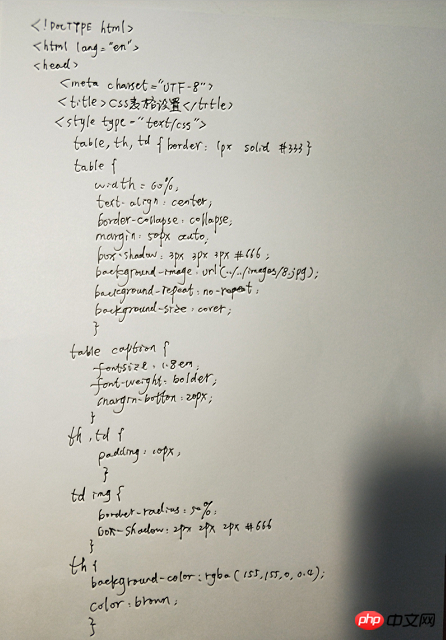 <!DOCTYPE html>
<html lang="en">
<head>
<meta charset="UTF-8">
<title>CSS表格设置</title>
<style type="text/css">
table, th, td {border: 1px solid #333}
table {
width = 60%;
text-align: center;
border-collapse: collapse;
margin: 50px auto;
box-shadow: 3px 3px 3px #666;
background-image: url(../../images/8.jpg);
background-repeat: no-repeat;
background-size: cover;
}
table caption {
fontsize: 1.8em;
font-weight: bolder;
margin-botton: 20px;
}
th, td {
padding: 10px;
}
td img {
border-radius: 50%;
box-shadow: 2px 2px 2px #666
}
th {
background-color: rgba(155,155,0,0.4);
color: brown;
}
php 中文网